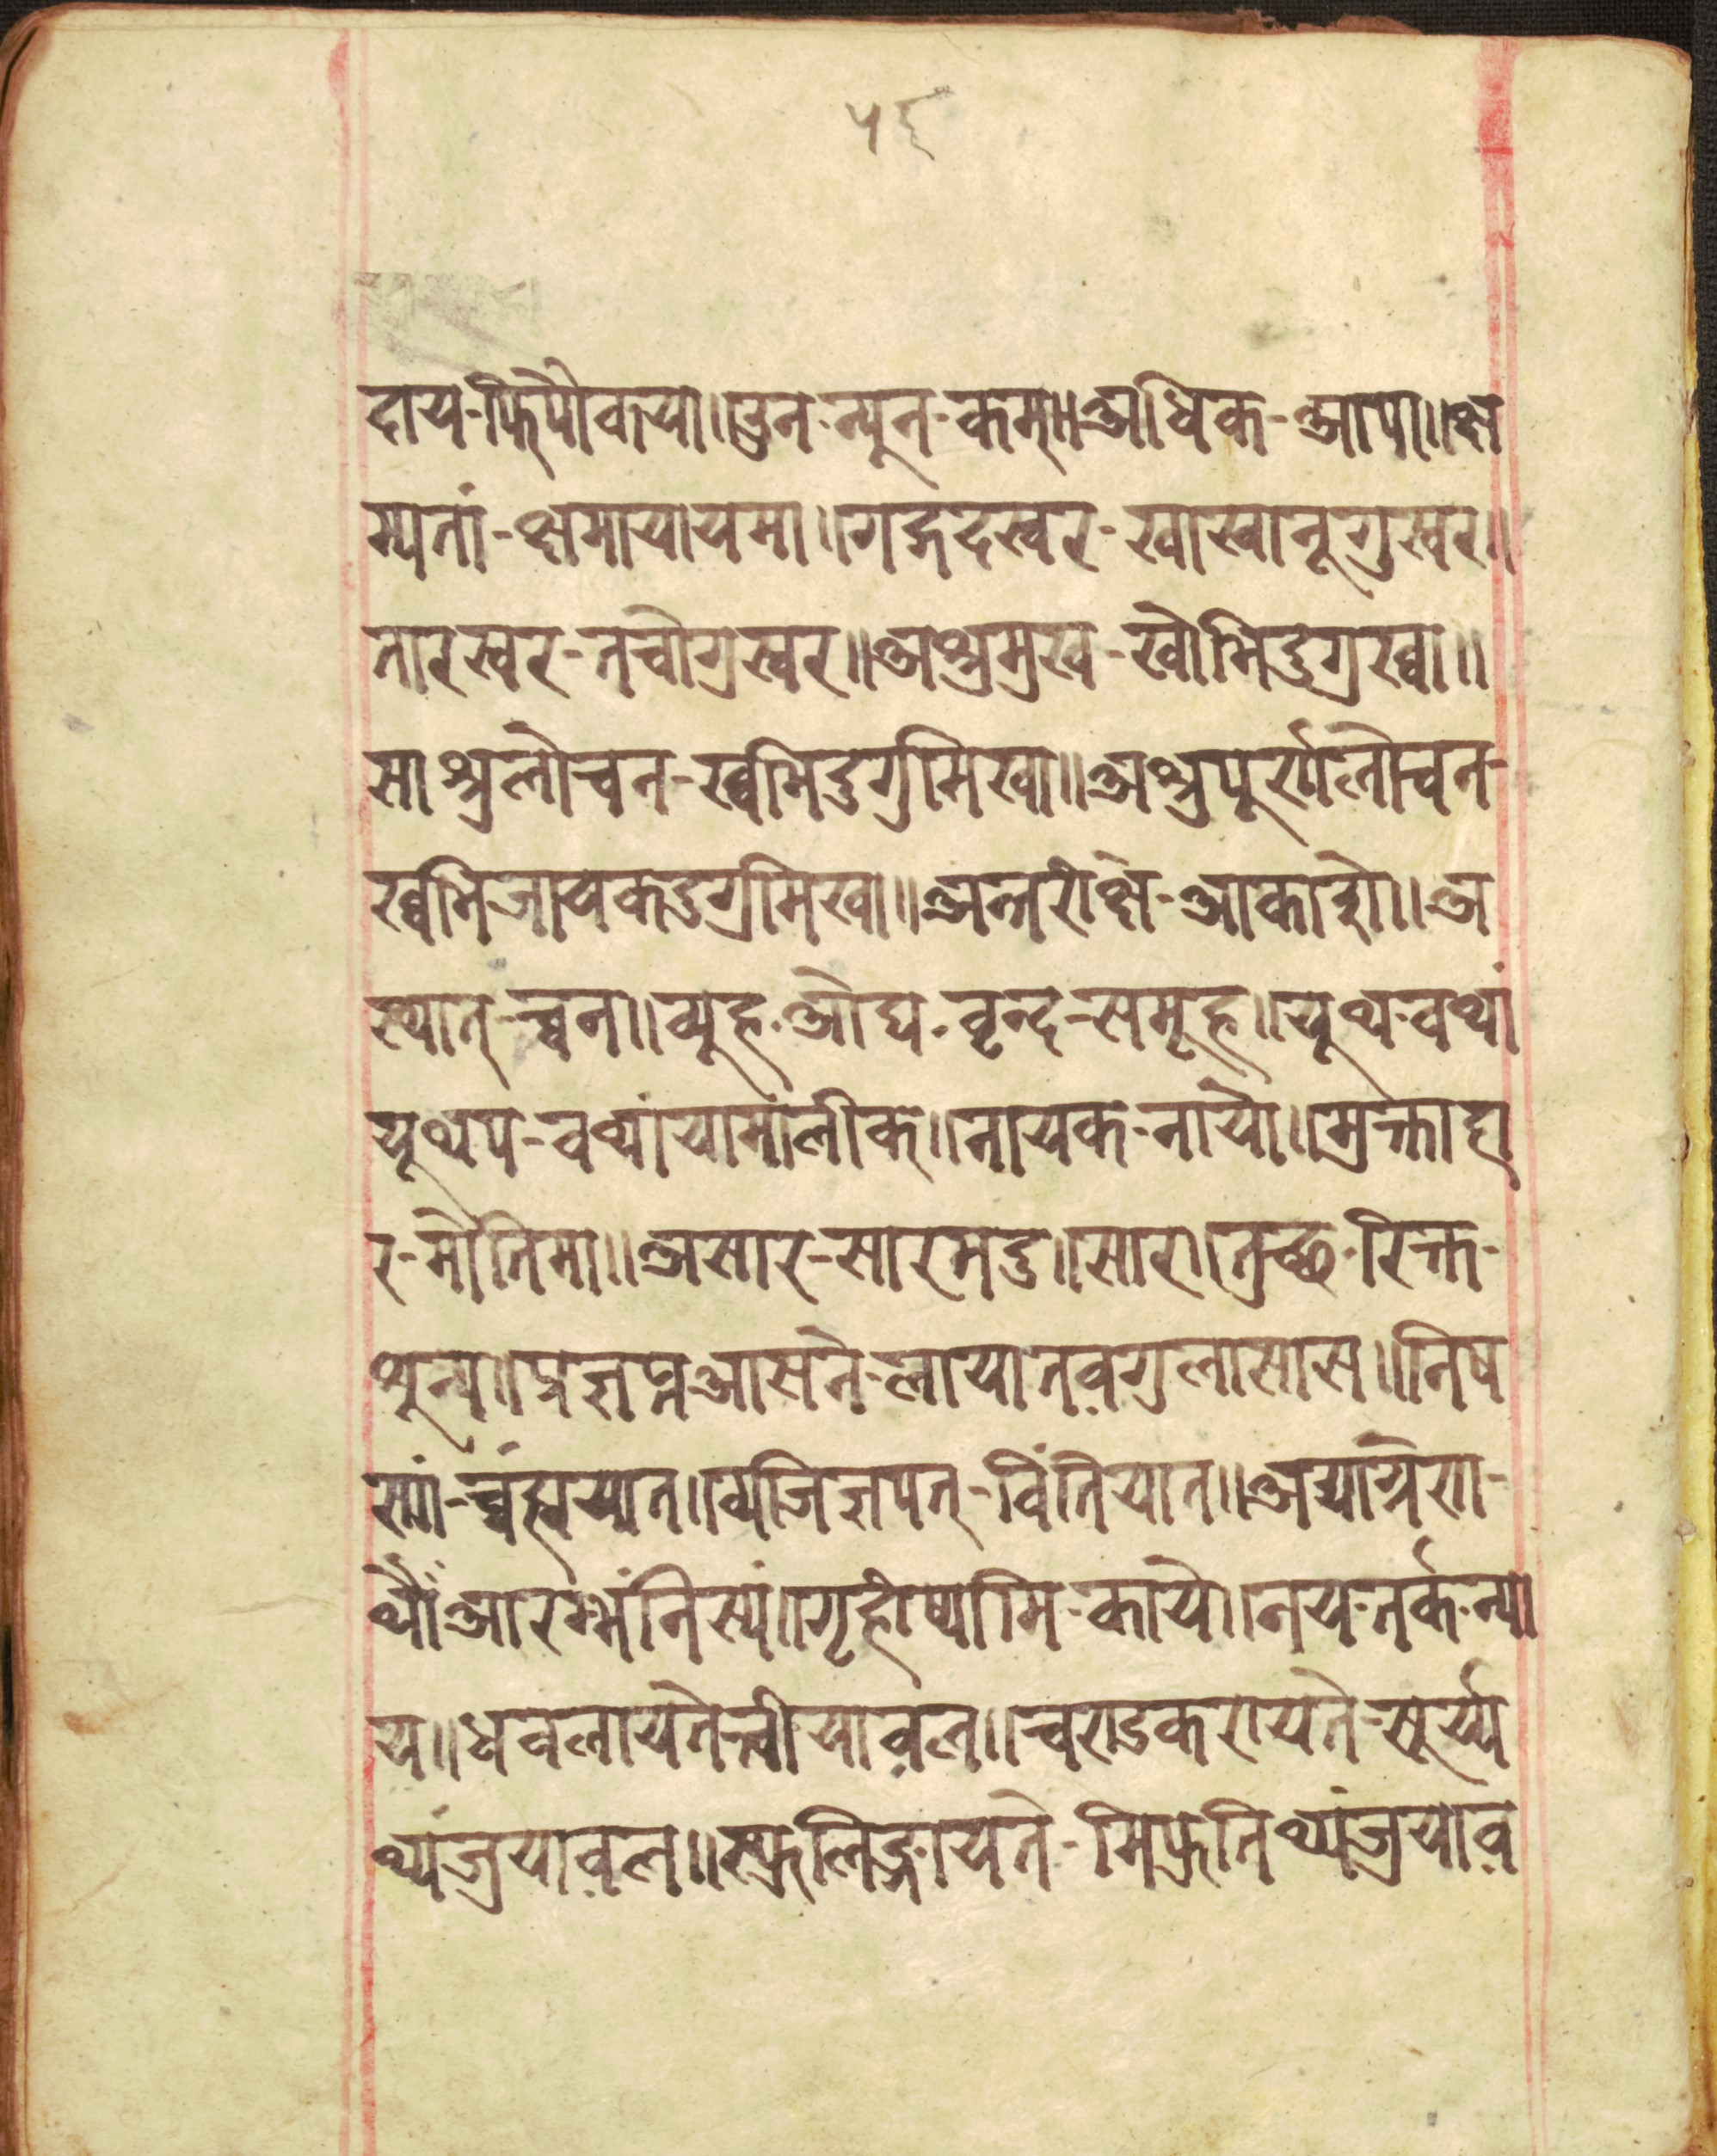 ५६
दाय-फिपौकया॥उन-न्यून-कम्॥अधिक-आपा॥क्ष
म्यतां-क्षमायायमा॥गद्गदस्वर-खाखानूगुस्वर॥
तारस्वर-तच्चोगुस्वर॥अश्रुमुख-खोभिदुगुख्वा॥
साश्रुलोचन-ख्वभिदुगुमिखा॥अश्रुपूर्णलोचन-
ख्वभिजायकदुगुमिखा॥अन्तरीक्षे-आकाशे॥अ
स्थात्-च्वन॥व्यूह-ओघ-वृन्द-समूह॥यूथ-बथां
यूथप-बथांयामालीक॥नायक-नाये॥मुक्ताहा
र-मोतिमा॥असार-सारमदु॥सारा।तुच्छ-रिक्त-
शून्य॥प्रज्ञप्तआसने-लायातव़गुलासास॥निष
ण्णां-च्वंह्मयात॥व्यजिज्ञपत्-विंतियात॥अद्याग्रेणा-
थौंआरम्भंनिस्यं॥गृहीष्यामि-काये॥नय-तर्क-न्या
य॥धवलायतेत्वीयाव़ल॥चण्डकरायते-सूर्य्य
थ्यंजुयाव़ल॥स्फुलिङ्गायते-मिफुतिथ्यंजुयाव़